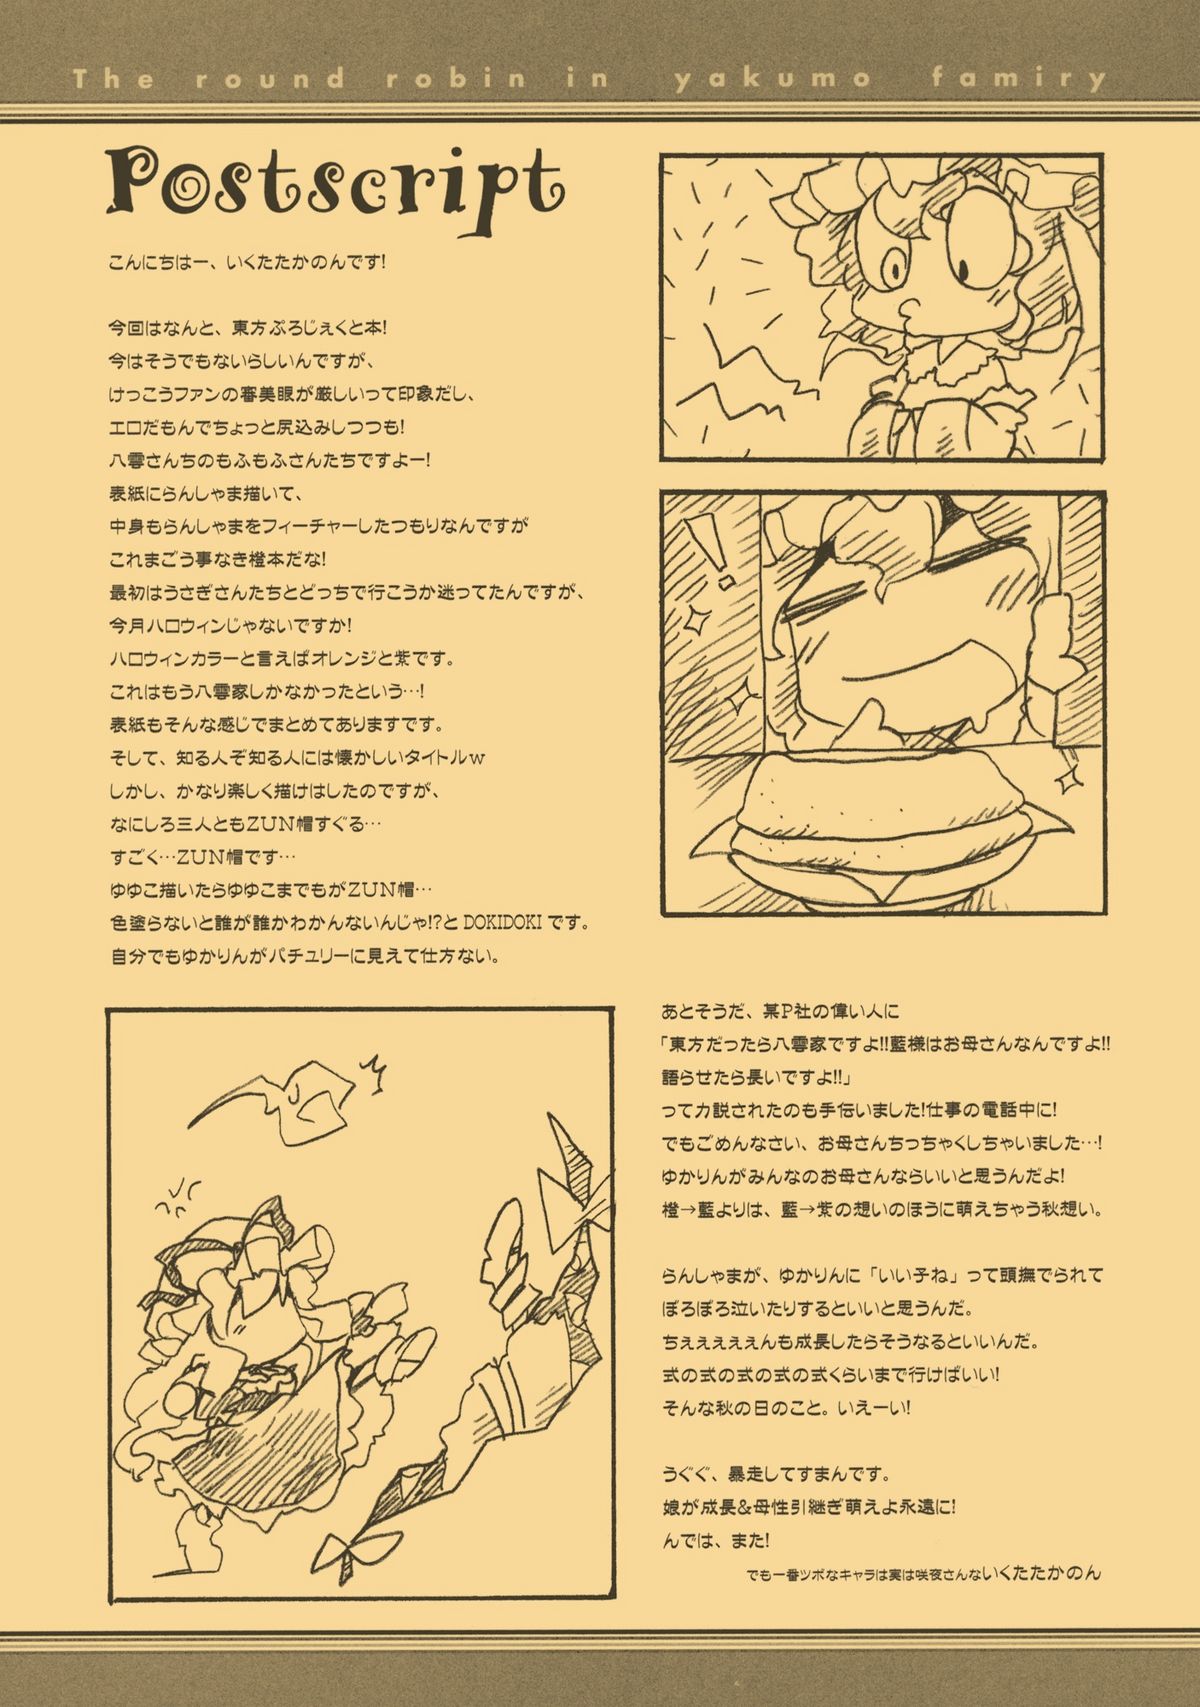 The round robin in yakumo famiry
Postscript
こんにちはー、いくたたかのんです!
今回はなんと、東方ぷろじぇくと本!
今はそうでもないらしいんですが、
けっこうファンの審美眼が厳しいって印象だし、
エロだもんでちょっと尻込みしつつも!
八雲さんちのもふもふさんたちですよー!
表紙にらんしゃま描いて、
中身もらんしゃまをフィーチャーしたつもりなんですが
これまごう事なき橙本だな!
最初はうさぎさんたちとどっちで行こうか迷ってたんですが、
今月ハロウィンじゃないですか!
ハロウィンカラーと言えばオレンジと紫です。
これはもう八雲家しかなかったという…!
表紙もそんな感じでまとめてありますです。
そして、知る人ぞ知る人には懐かしいタイトルw
しかし、かなり楽しく描けはしたのですが、
なにしろ三人ともZUN帽すぐる…
すごく…ZUN帽です…
ゆゆこ描いたらゆゆこまでもがZUN帽…
色塗らないと誰が誰かわかんないんじゃ!?と DOKIDOKI です。
自分でもゆかりんがパチュリーに見えて仕方ない。
あとそうだ、某P社の偉い人に
「東方だったら八雲家ですよ!!藍様はお母さんなんですよ!!
語らせたら長いですよ!!」
って力説されたのも手伝いました!仕事の電話中に!
でもごめんなさい、お母さんちっちゃくしちゃいました…!
ゆかりんがみんなのお母さんならいいと思うんだよ!
橙→藍よりは、藍→紫の想いのほうに萌えちゃう秋想い。
らんしゃまが、ゆかりんに「いい子ね」って頭撫でられて
ぼろぼろ泣いたりするといいと思うんだ。
ちぇぇぇぇぇんも成長したらそうなるといいんだ。
式の式の式の式の式くらいまで行けばいい!
そんな秋の日のこと。いえーい!
うぐぐ、暴走してすまんです。
娘が成長&母性引継ぎ萌えよ永遠に!
んでは、また!
でも一番ツボなキャラは実は咲夜さんないくたたかのん